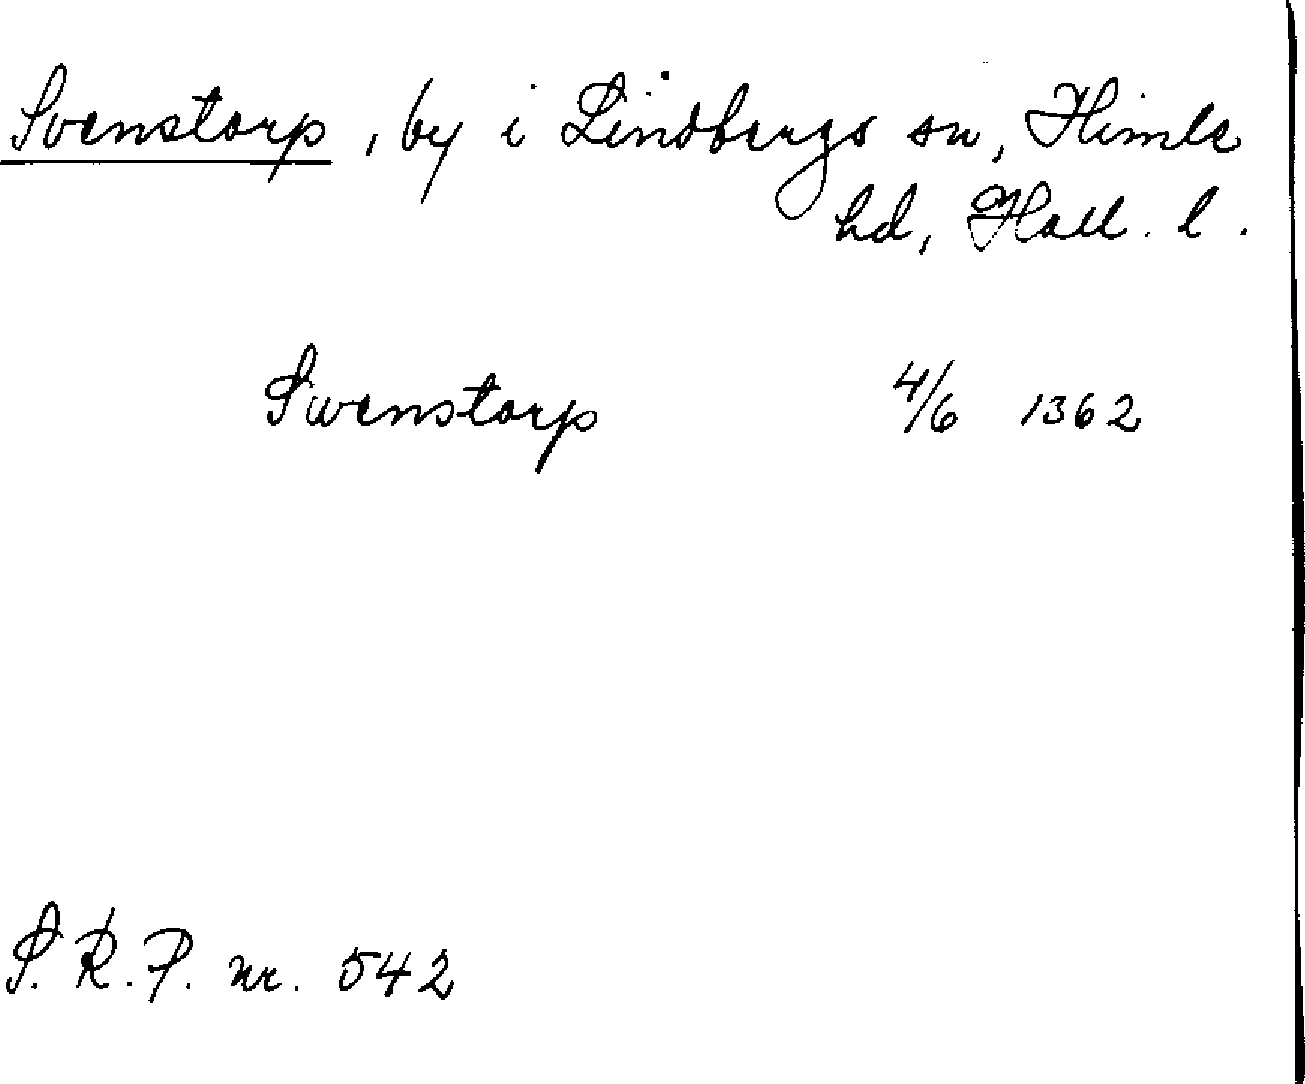 Svenstorp, by i Lindbergs sn, Himle
hd, Hall. l.
Swenstorp 4/6 1362
S.R.P. nr. 542